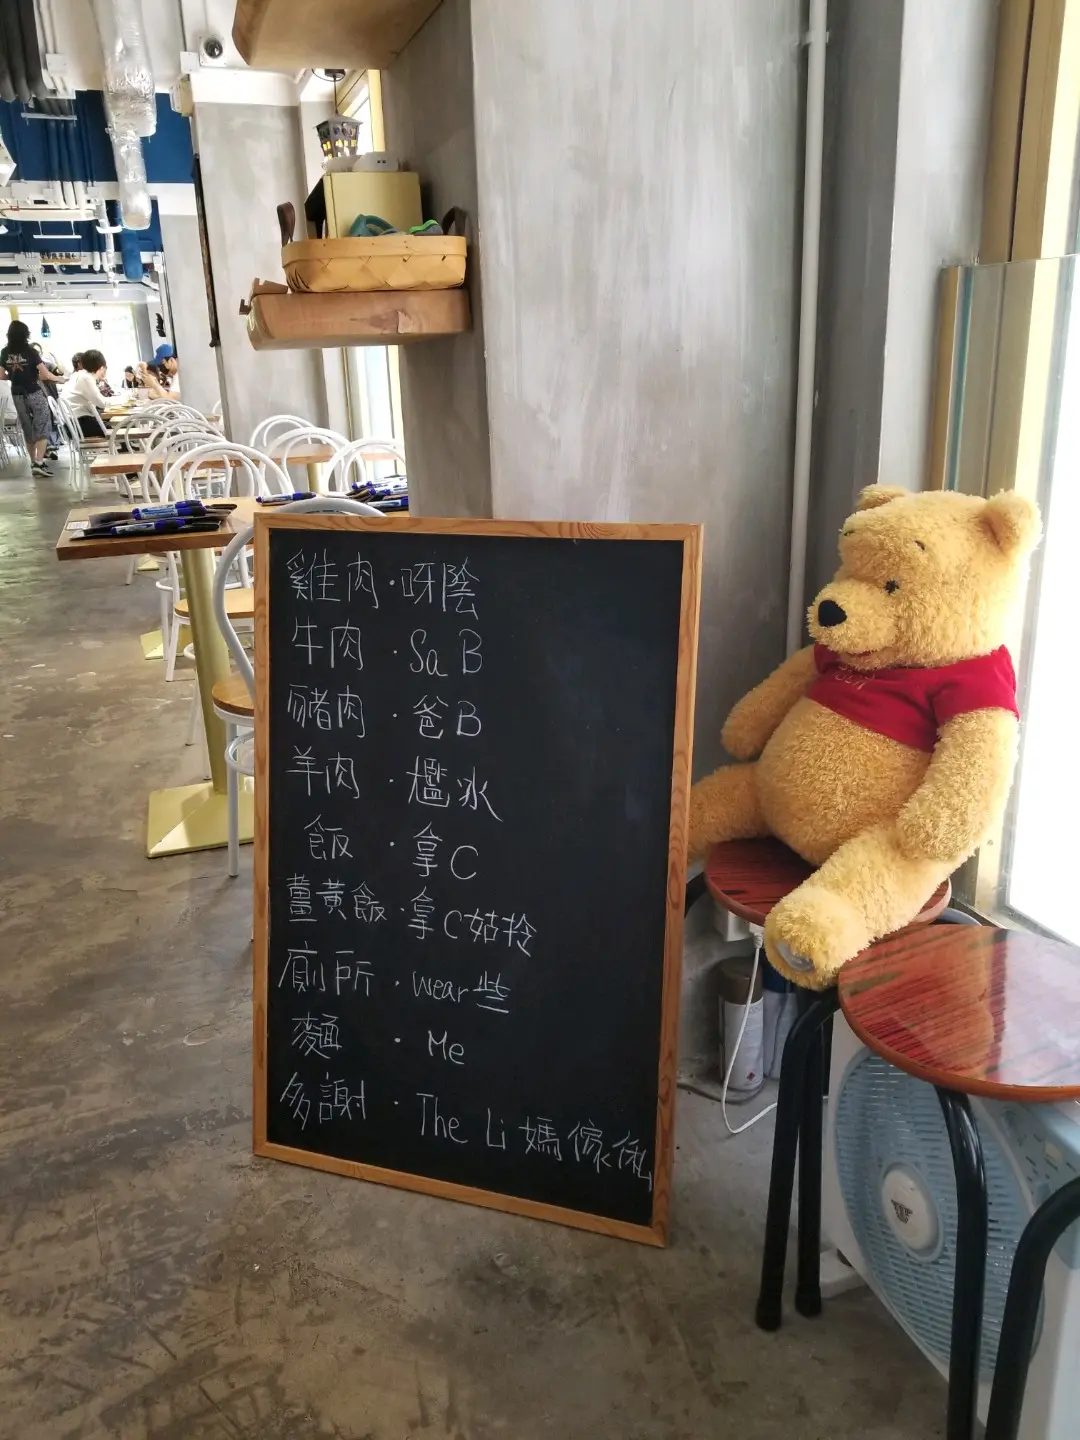 雞肉·呀陰
牛肉·Sa B
豬肉·爸B
羊肉·檻冰
飯·拿C
薑黃飯·拿C姑拎
廁所·wear些
麵·Me
多謝·The Li 媽傢俬